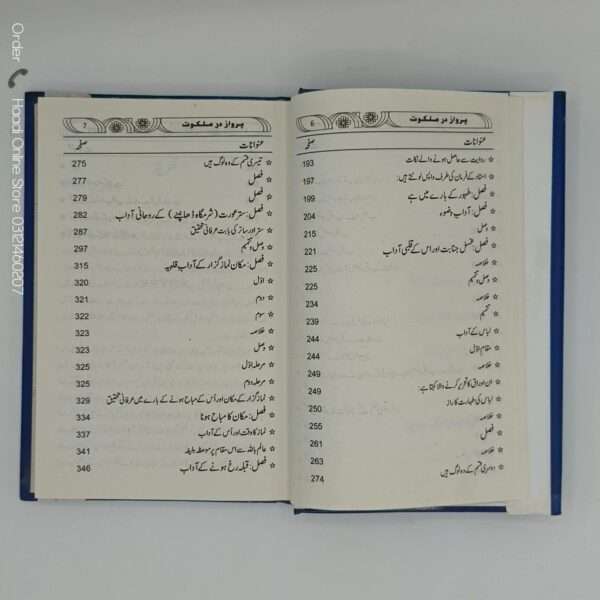 پرواز در ملکوت 6
عنوانات صفحہ
☆ روایت سے حاصل ہونے والے نکات 193
☆ استاد کے فرمان کی طرف واپس لوٹتے ہیں: 197
☆ فصل: طہور کے بارے میں ہے 199
☆ فصل: آداب وضوء 204
☆ وصل 215
☆ فصل: غسل جنابت اور اس کے قلبی آداب 221
☆ خلاصہ 225
☆ وصل و تتمیم 225
☆ خلاصہ 234
☆ تتمیم 239
☆ لباس کے آداب 244
☆ مقام اوّل 244
☆ خلاصہ 249
☆ ان اوراق کا تحریر کرنے والا کہتا ہے: 249
☆ لباس کی طہارت کا راز 250
☆ خلاصہ 255
☆ فصل 261
☆ خلاصہ 263
☆ دوسری قسم کے وہ لوگ ہیں 274
پرواز در ملکوت 7
عنوانات صفحہ
☆ تیسری قسم کے وہ لوگ ہیں 275
☆ فصل 277
☆ فصل 279
☆ فصل: ستر عورت (شرمگاہ ڈھانپنے) کے روحانی آداب 282
☆ ستر اور ساتر کی بابت عرفانی تحقیق 287
☆ وصل و تتمیم 297
☆ فصل: مکان نماز گزار کے آداب قلبیہ 315
☆ اوّل 320
☆ دوم 321
☆ سوم 322
☆ خلاصہ 323
☆ وصل 323
☆ مرحلہ اوّل 325
☆ مرحلہ دوم 325
☆ نماز گزار کے مکان اور اُس کے مباح ہونے کے بارے میں عرفانی تحقیق 329
☆ فصل: مکان کا مباح ہونا 334
☆ نماز کا وقت اور اُس کے آداب 337
☆ عالم باللہ سے اس مقام پر موعظہ بلیغہ 341
☆ فصل: قبلہ رخ ہونے کے آداب 346
Order Haadi Online Store 0312 4460207